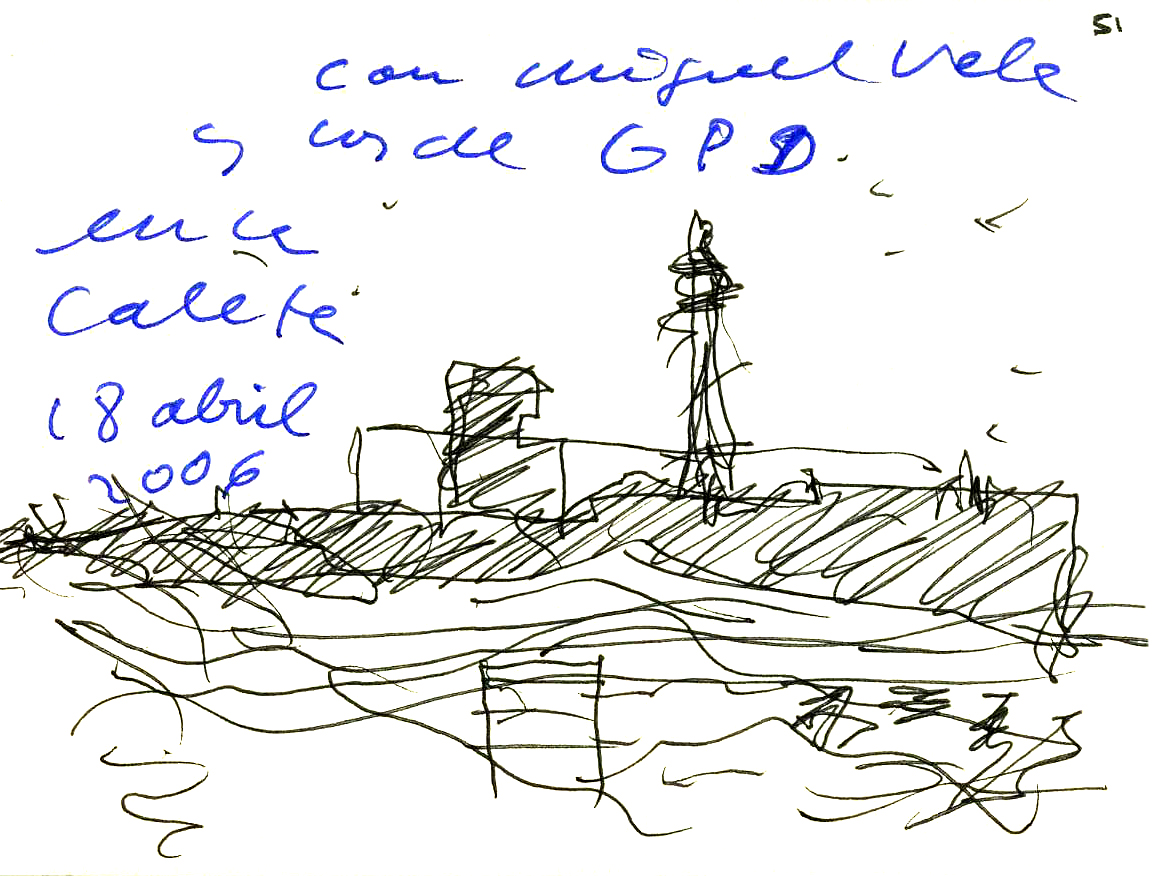 51
con miguel Vele
y los de GPD.
en la
Caleta
18 abril
2006